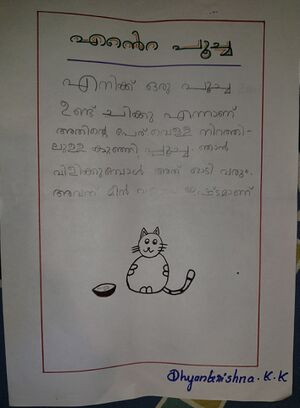 എന്റെ പൂച്ച
എനിക്ക് ഒരു പൂച്ച
ഉണ്ട് ചിക്കു എന്നാണ്
അതിന്റെ പേര് വെള്ള നിറത്തി-
ലുള്ള കുഞ്ഞി പൂച്ച. ഞാൻ
വിളിക്കുമ്പോൾ അത് ഓടി വരും.
അവന് മീൻ ഇഷ്ടമാണ്
Dhyankrishna. K. K